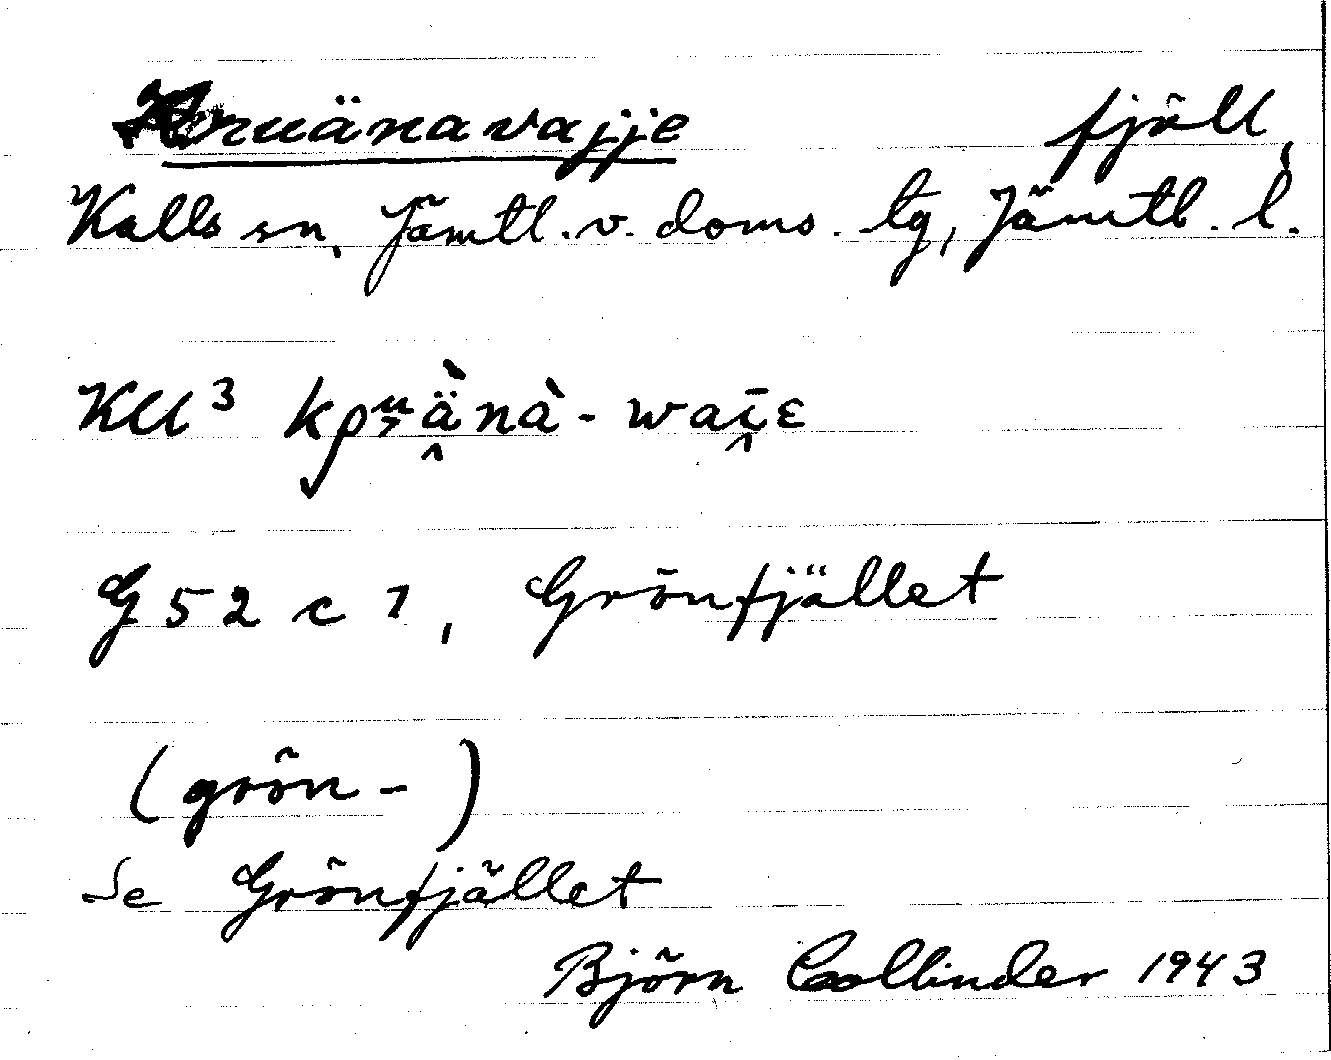 Kruänavajje fjäll,
Kalls sn, Jämtl. v. doms. tg, Jämtl. l.
KU³
G 52 c 1, Grönfjället
(grön-)
Se Grönfjället
Björn Collinder 1943